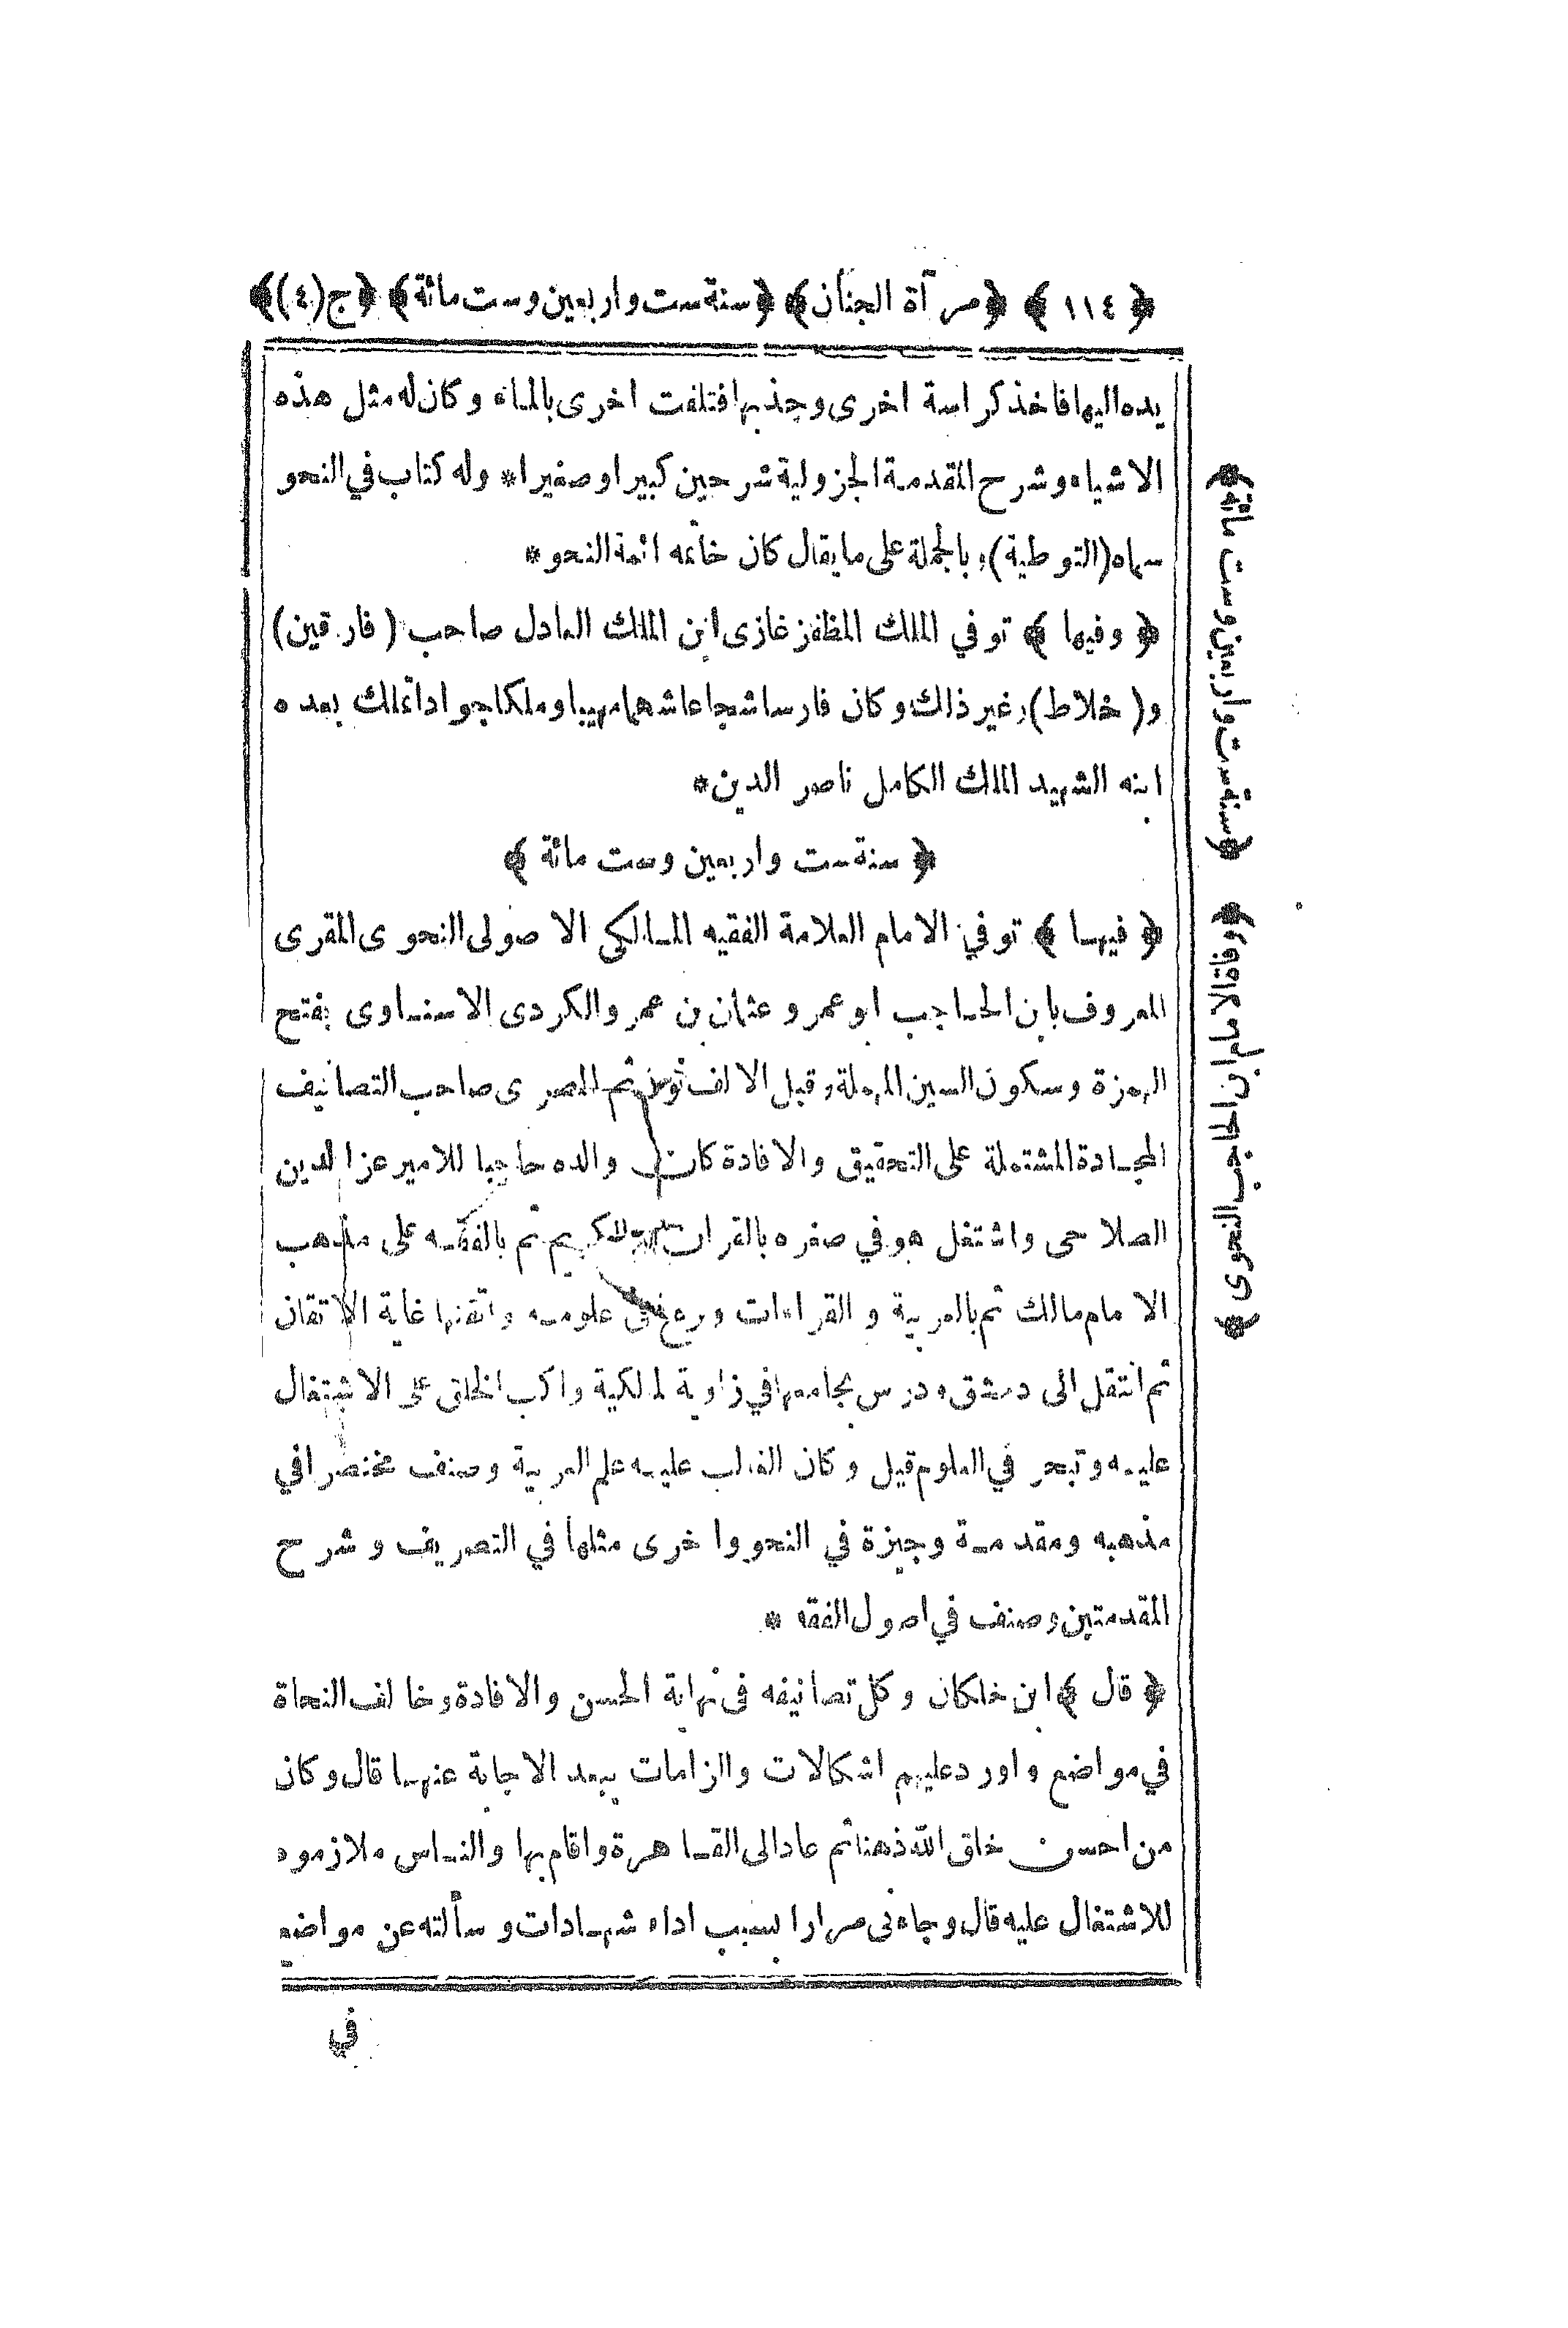 ﴿ ١١٤ ﴾ ﴿مرآة الجنان﴾ ﴿سنة ست واربعين وست مائة﴾ ﴿ج(٤)﴾
يده اليها فاخذ كراسة اخرى وجذبها فتلفت اخرى بالماء وكان له مثل هذه
الاشياء وشرح المقدمة الجزولية شرحين كبيرا وصغيرا* وله كتاب في النحو
سماه (التوطية) وبالجملة على ما يقال كان خاتمه ائمة النحو*
﴿ وفيها ﴾ توفي الملك المظفر غازى ابن الملك العادل صاحب (فارقين)
و(خلاط) وغير ذلك وكان فارسا شجاعا شهما مهيبا وملكا جوادا تملك بعده
ابنه الشهيد الملك الكامل ناصر الدين*
﴿ سنة ست واربعين وست مائة ﴾
﴿ فيها ﴾ توفي الامام العلامة الفقيه المالكى الاصولى النحوى المقرى
المعروف بابن الحاجب ابو عمرو عثمان بن عمرو الكردى الاسنـاوى بفتح
الهمزة وسكون السين المهملة وقبل الالف نون ثم المصرى صاحب التصانيف
المجادة المشتملة على التحقيق والافادة كان والده حاجبا للامير عز الدين
الصلاحى واشتغل هو في صغره بالقران الكريم ثم بالفقه على مذهب
الامام مالك ثم بالعربية والقراءات وبرع في علومه واتقنها غاية الاتقان
ثم انتقل الى دمشق ودرس بجامعها في زاوية المالكية واكب الخلق على الاشتغال
عليه وتبحر في العلوم قيل وكان الغالب عليه علم العربية وصنف مختصرا في
مذهبه ومقدمة وجيزة في النحو واخرى مثلها في التصريف وشرح
المقدمتين وصنف في اصول الفقه *
﴿ قال ﴾ ابن خلكان وكل تصانيفه فى نهاية الحسن والافادة وخالف النحاة
في مواضع واورد عليهم اشكالات والزامات يبعد الاجابة عنها قال وكان
من احسن خلق الله ذهنا ثم عاد الى القاهرة واقام بها والناس ملازموه
للاشتغال عليه قال وجاءنى مرارا بسبب اداء شهادات وسألته عن مواضع
في
﴿سنة ست واربعين وست مائة﴾